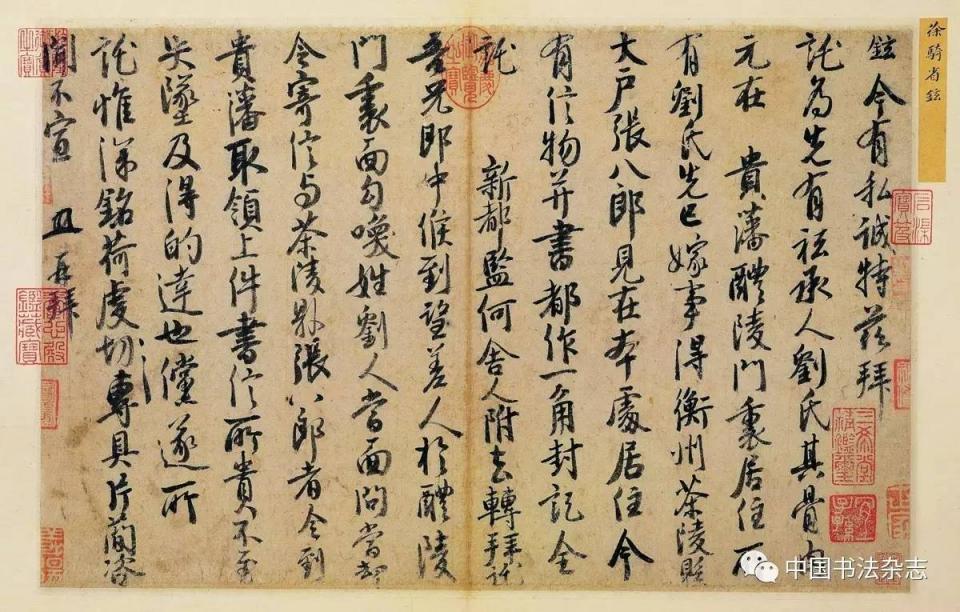 徐騎省鉉
鉉今有私誠特茲拜
託為先有祗承人劉氏其骨肉
元在 貴藩醴陵門裏居住所
有劉氏先已嫁事得衡州茶陵縣
大戶張八郎見在本處居住今
有信物并書都作一角封記全
託
新都監何舍人附去轉拜託
吾兄郎中候到望差人於醴陵
門裏面勾喚姓劉人當面問當却
令寄信与茶陵縣張八郎者令到
貴藩取領上件書信所貴不至
失墜及得的達也儻遂所
託惟深銘荷虔切專具片簡咨
聞不宣 再拜
三希堂精鑑璽
宜子孫
中国书法杂志